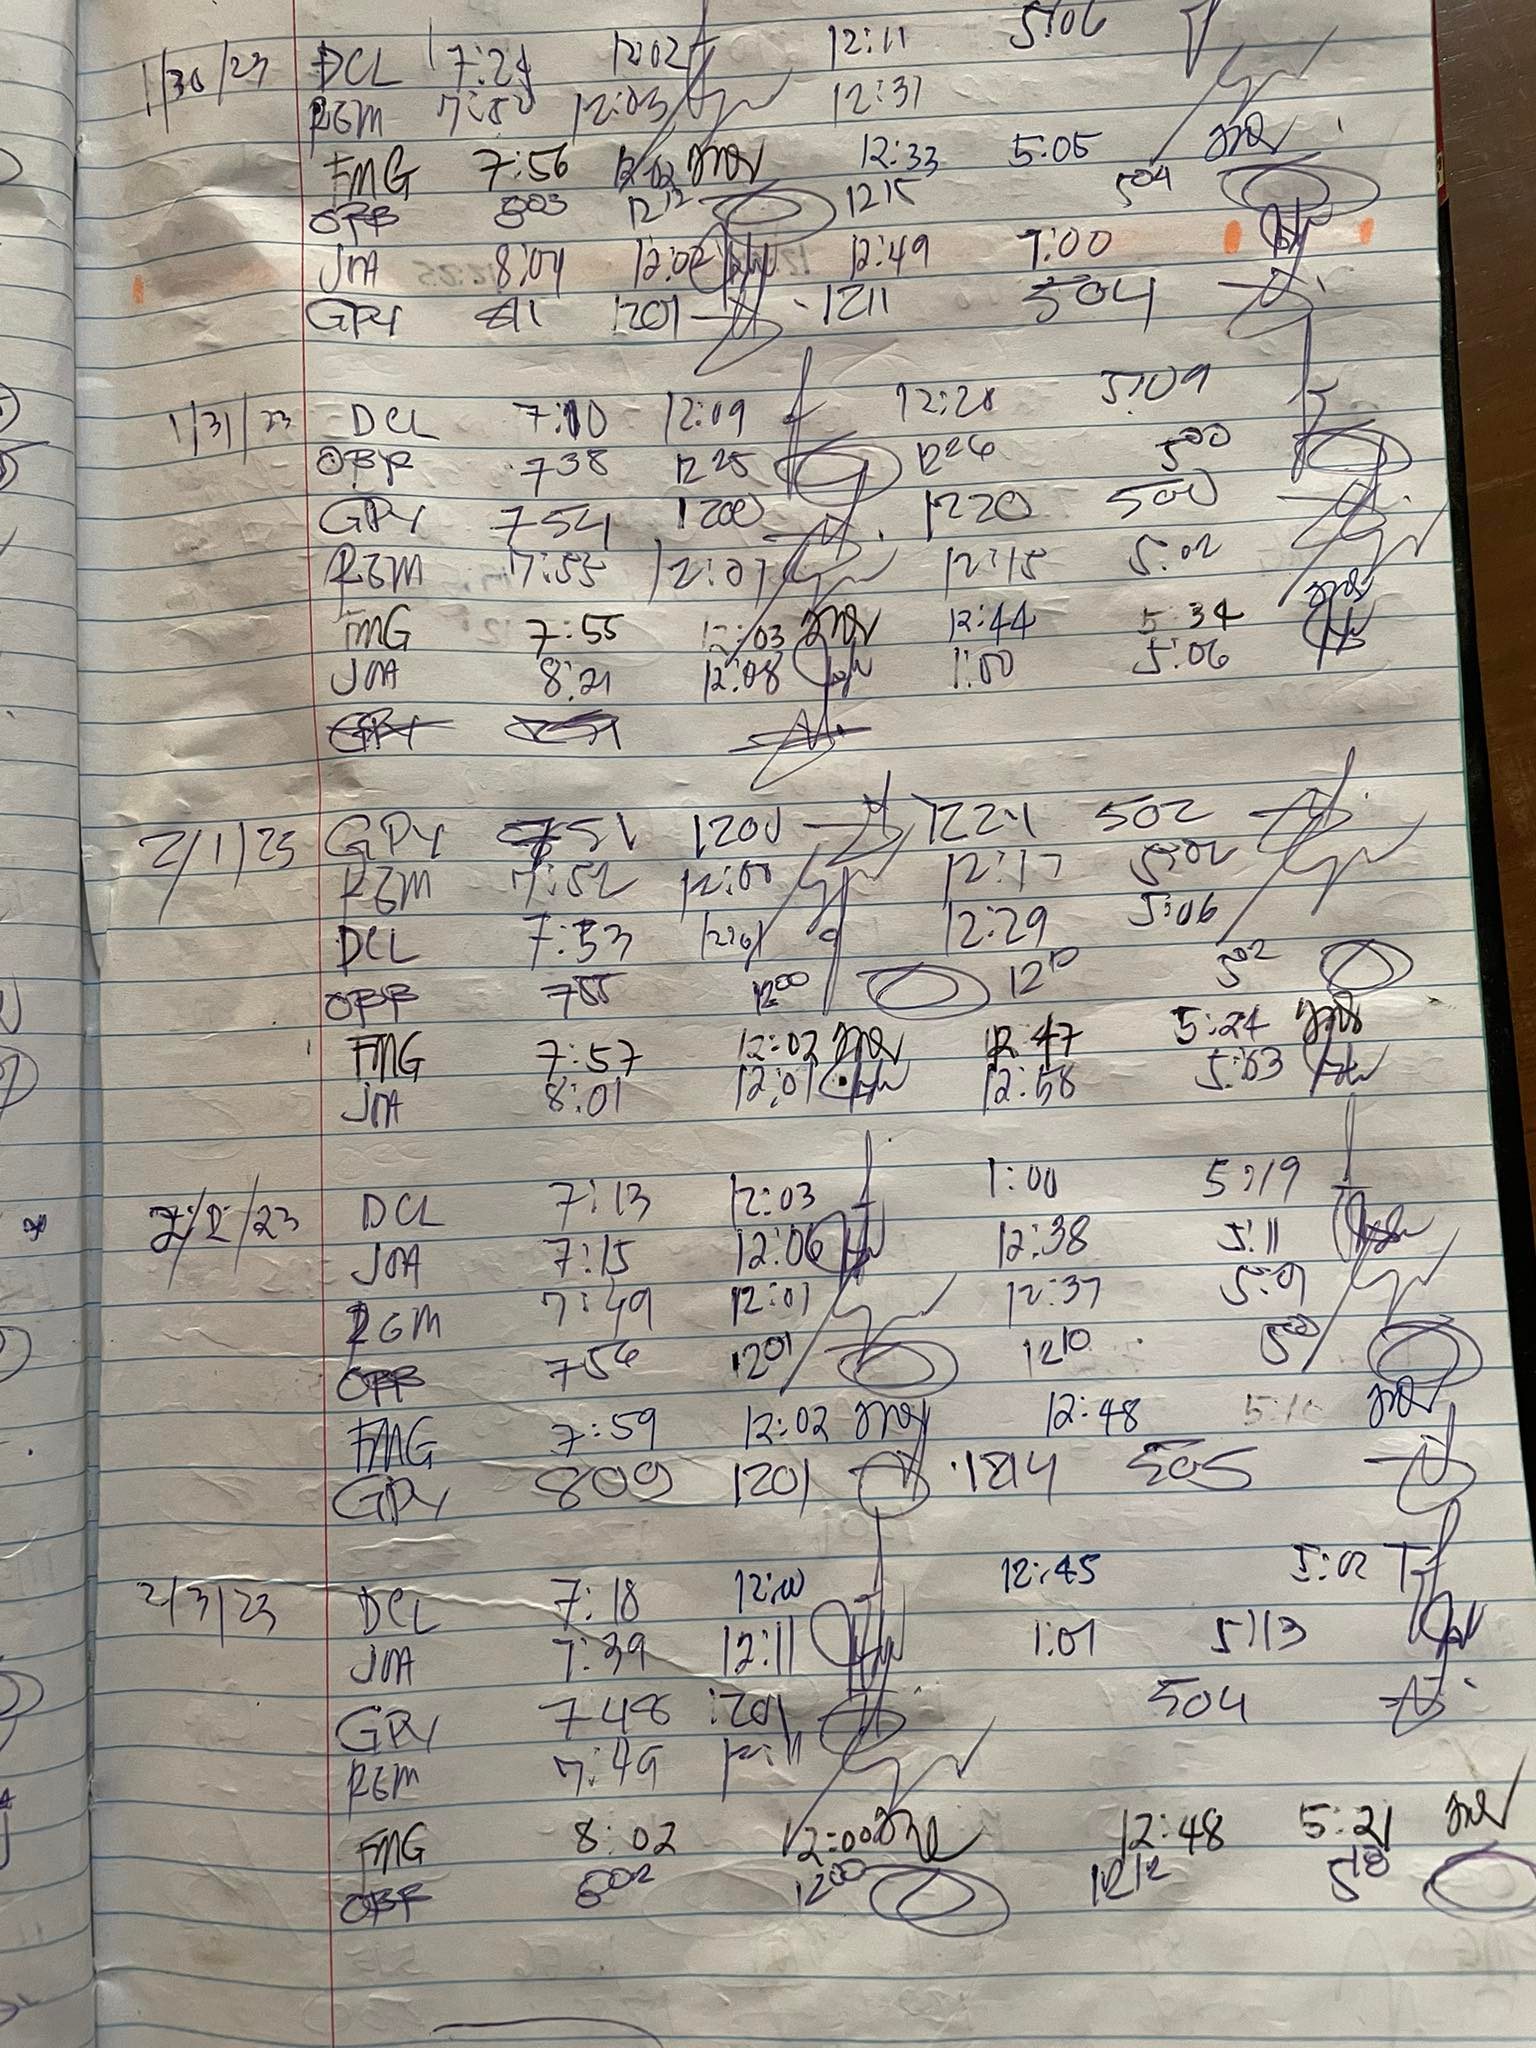 1/30/23 DCL 7:24 12:02 12:11 5:06
RGM 7:50 12:03 12:37
FMG 7:56 12:02 12:33 5:05
OBB 803 1212 1215 504
JMA 8:04 12:02 12:49 1:00
GPY 811 1201 1211 504
1/31/23 DCL 7:10 12:09 12:28 5:09
OBB 738 1225 1226 500
GPY 754 1200 1220 500
RGM 7:55 12:07 12:15 5:02
FMG 7:55 12:03 12:44 5:34
JMA 8:21 12:08 1:00 5:06
GPY
2/1/23 GPY 751 1200 1221 502
RGM 7:52 12:00 12:17 5:02
DCL 7:53 12:01 12:29 5:06
OBB 755 1200 1210 502
FMG 7:57 12:02 12:47 5:24
JMA 8:01 12:01 12:58 5:03
2/2/23 DCL 7:13 12:03 1:00 5:19
JMA 7:15 12:06 12:38 5:11
RGM 7:49 12:01 12:37 5:01
OBB 756 1201 1210 500
FMG 7:59 12:02 12:48
GPY 809 1201 1214 505
2/3/23 DCL 7:18 12:00 12:45 5:02
JMA 7:39 12:11 1:01 5:13
GPY 748 1201 504
RGM 7:49 12:11
FMG 8:02 12:00 12:48 5:21
OBB 802 1200 1212 510